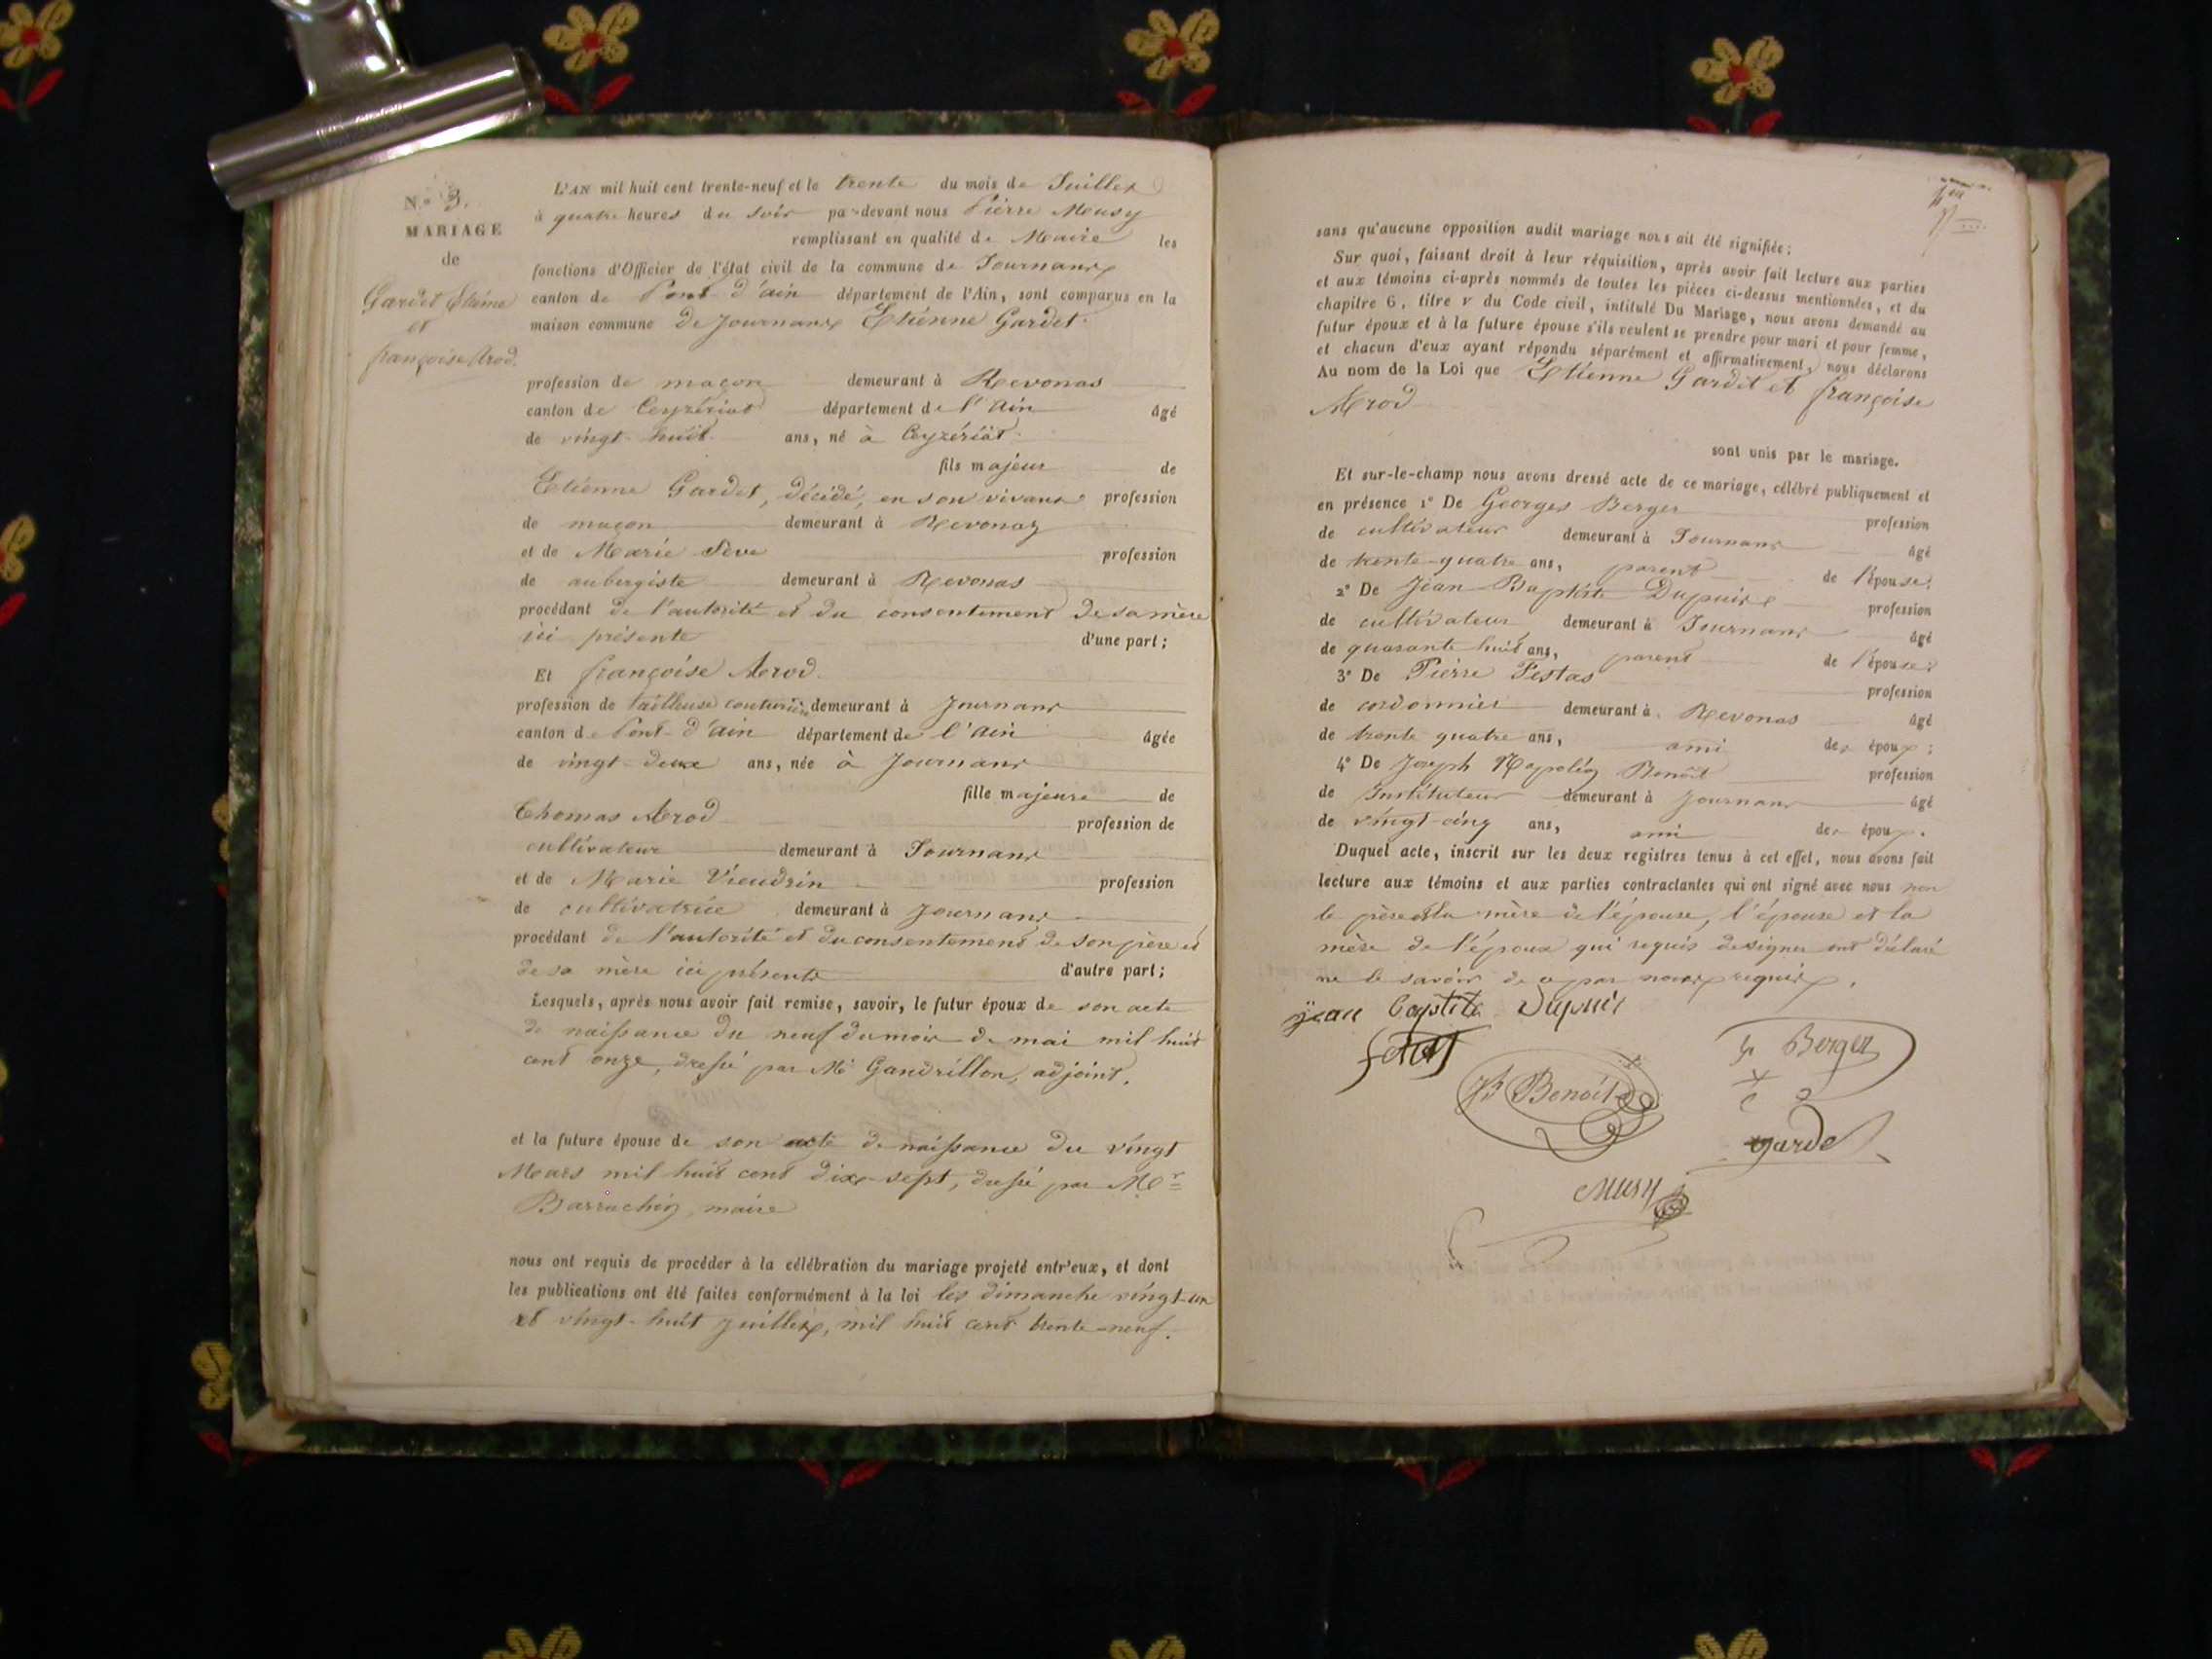 N.o 3.
MARIAGE
de
Gardet Etiéne
et
françoise Arod.
L'AN mil huit cent trente-neuf et le trente du mois de Juillet
à quatre heures du soir par-devant nous Pierre Musy
remplissant en qualité de Maire les
fonctions d'Officier de l'état civil de la commune de Journans
canton de Pont-d'ain département de l'Ain, sont comparus en la
maison commune de Journans Etiénne Gardet.
profession de maçon demeurant à Revonas
canton de Ceyzériat département de l'Ain âgé
de vingt-huit ans, né à Ceyzériat
fils majeur de
Etiénne Gardet, décédé, en son vivant profession
de maçon demeurant à Revonas
et de Marie Sève profession
de aubergiste demeurant à Revonas
procédant de l'autorité et du consentement de sa mère
ici présente d'une part;
Et françoise Arod.
profession de tailleuse couturière demeurant à Journans
canton de Pont-d'ain département de l'Ain âgée
de vingt-deux ans, née à Journans
fille majeure de
Thomas Arod profession de
cultivateur demeurant à Journans
et de Marie Vieudrin profession
de cultivatrice demeurant à Journans
procédant de l'autorité et du consentement de son père et
de sa mère ici présents d'autre part;
Lesquels, après nous avoir fait remise, savoir, le futur époux de son acte
de naissance du neuf du mois de mai mil huit
cent onze, dressé par Mr Gandrillon, adjoint.
et la future épouse de son acte de naissance du vingt
Mars mil huit cent dix-sept, dressé par Mr
Barrachin, maire
nous ont requis de procéder à la célébration du mariage projeté entr'eux, et dont
les publications ont été faites conformément à la loi les dimanche vingt-un
et vingt-huit Juillet, mil huit cent trente-neuf.
sans qu'aucune opposition audit mariage nous ait été signifiée;
Sur quoi, faisant droit à leur réquisition, après avoir fait lecture aux parties
et aux témoins ci-après nommés de toutes les pièces ci-dessus mentionnées, et du
chapitre 6, titre v du Code civil, intitulé Du Mariage, nous avons demandé au
futur époux et à la future épouse s'ils veulent se prendre pour mari et pour femme,
et chacun d'eux ayant répondu séparément et affirmativement, nous déclarons
Au nom de la Loi que Etiénne Gardet et françoise
Arod
sont unis par le mariage.
Et sur-le-champ nous avons dressé acte de ce mariage, célébré publiquement et
en présence 1° De Georges Berger profession
de cultivateur demeurant à Journans âgé
de trente-quatre ans, parent de l'épouse;
2° De Jean-Baptiste Dupuis profession
de cultivateur demeurant à Journans âgé
de quarante huit ans, parent de l'épouse;
3° De Pierre Festas profession
de cordonnier demeurant à Revonas âgé
de trente quatre ans, ami des époux;
4° De Joseph Benoît profession
de Instituteur demeurant à Journans âgé
de vingt-cinq ans, ami des époux.
Duquel acte, inscrit sur les deux registres tenus à cet effet, nous avons fait
lecture aux témoins et aux parties contractantes qui ont signé avec nous non
le père et la mère de l'épouse, l'épouse et la
mère de l'époux qui requis de signer ont déclaré
ne le savoir de ce par nous requis.
jean Baptiste Dupuis
G Berger
JN Benoît
gardet
Musy